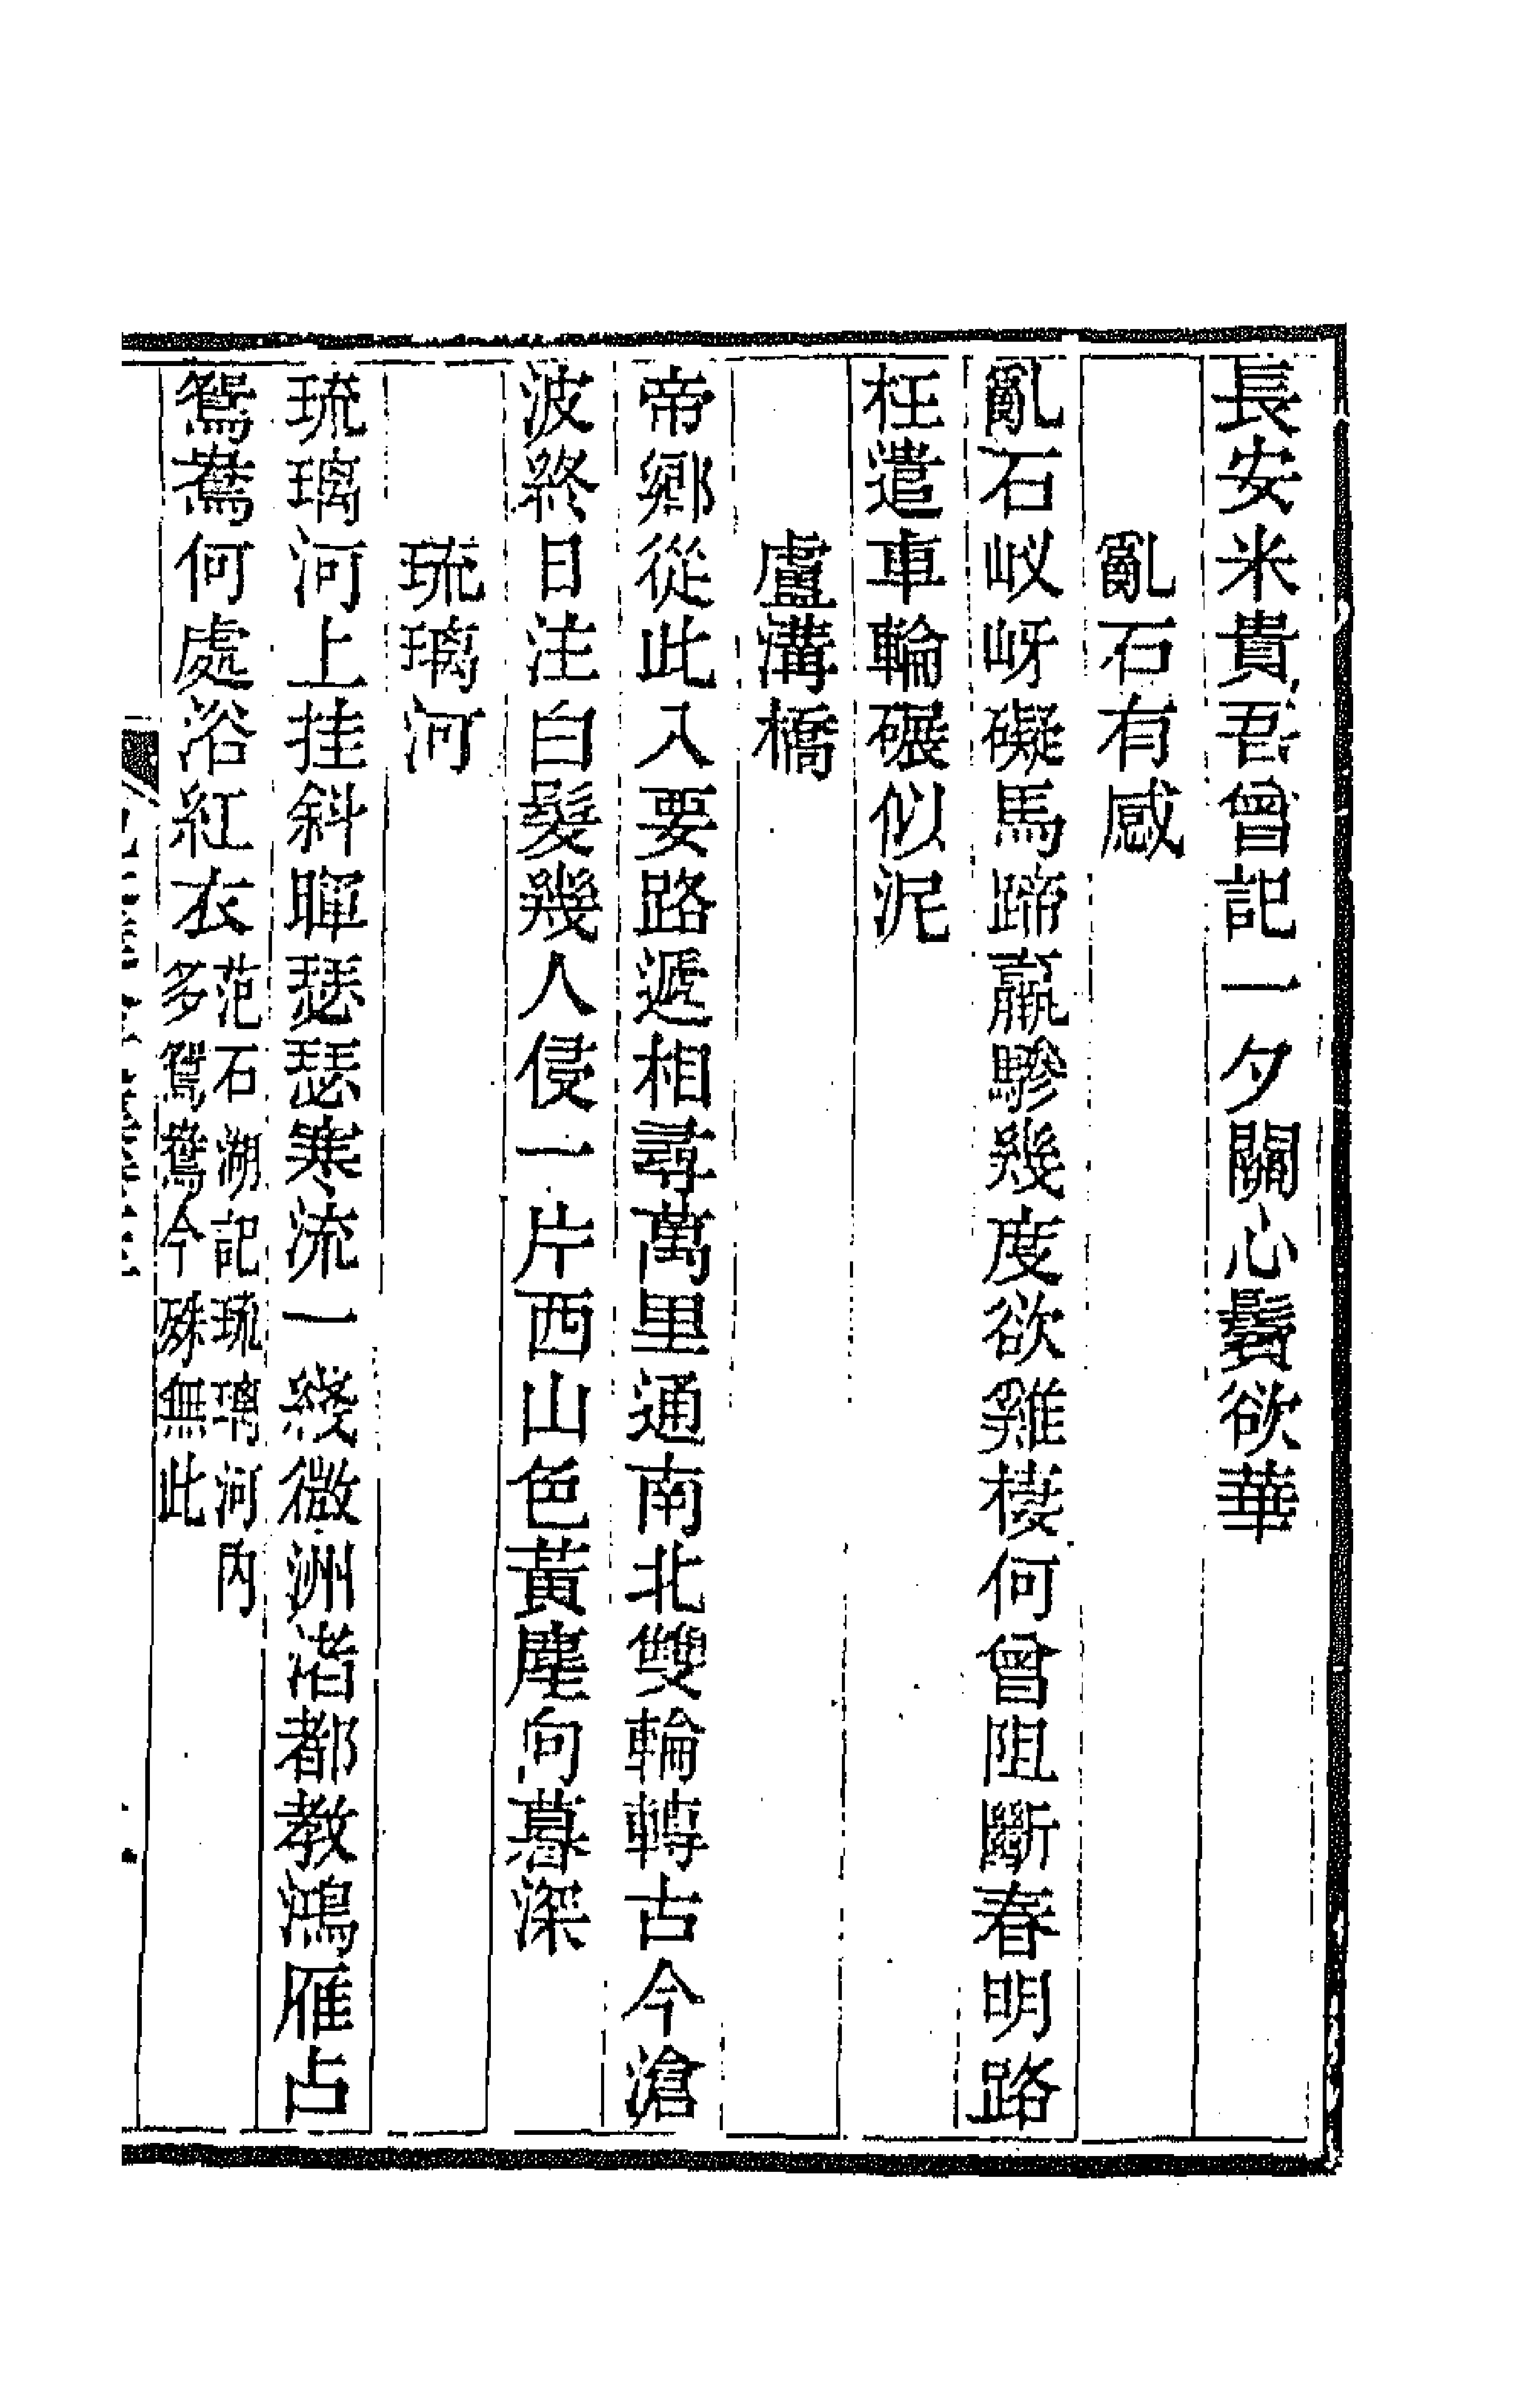 長安米貴吾曾記一夕關心鬢欲華
亂石有感
亂石㟁岈礙馬蹄羸驂幾度欲雞棲何曾阻斷春明路
枉遣車輪碾似泥
盧溝橋
帝鄉從此入要路遞相尋萬里通南北雙輪轉古今滄
波終日注白髮幾人侵一片西山色黃塵向暮深
琉璃河
琉璃河上挂斜暉瑟瑟寒流一綫微洲渚都教鴻雁占
鴛鴦何處浴紅衣范石湖記琉璃河內
多鴛鴦今殊無此